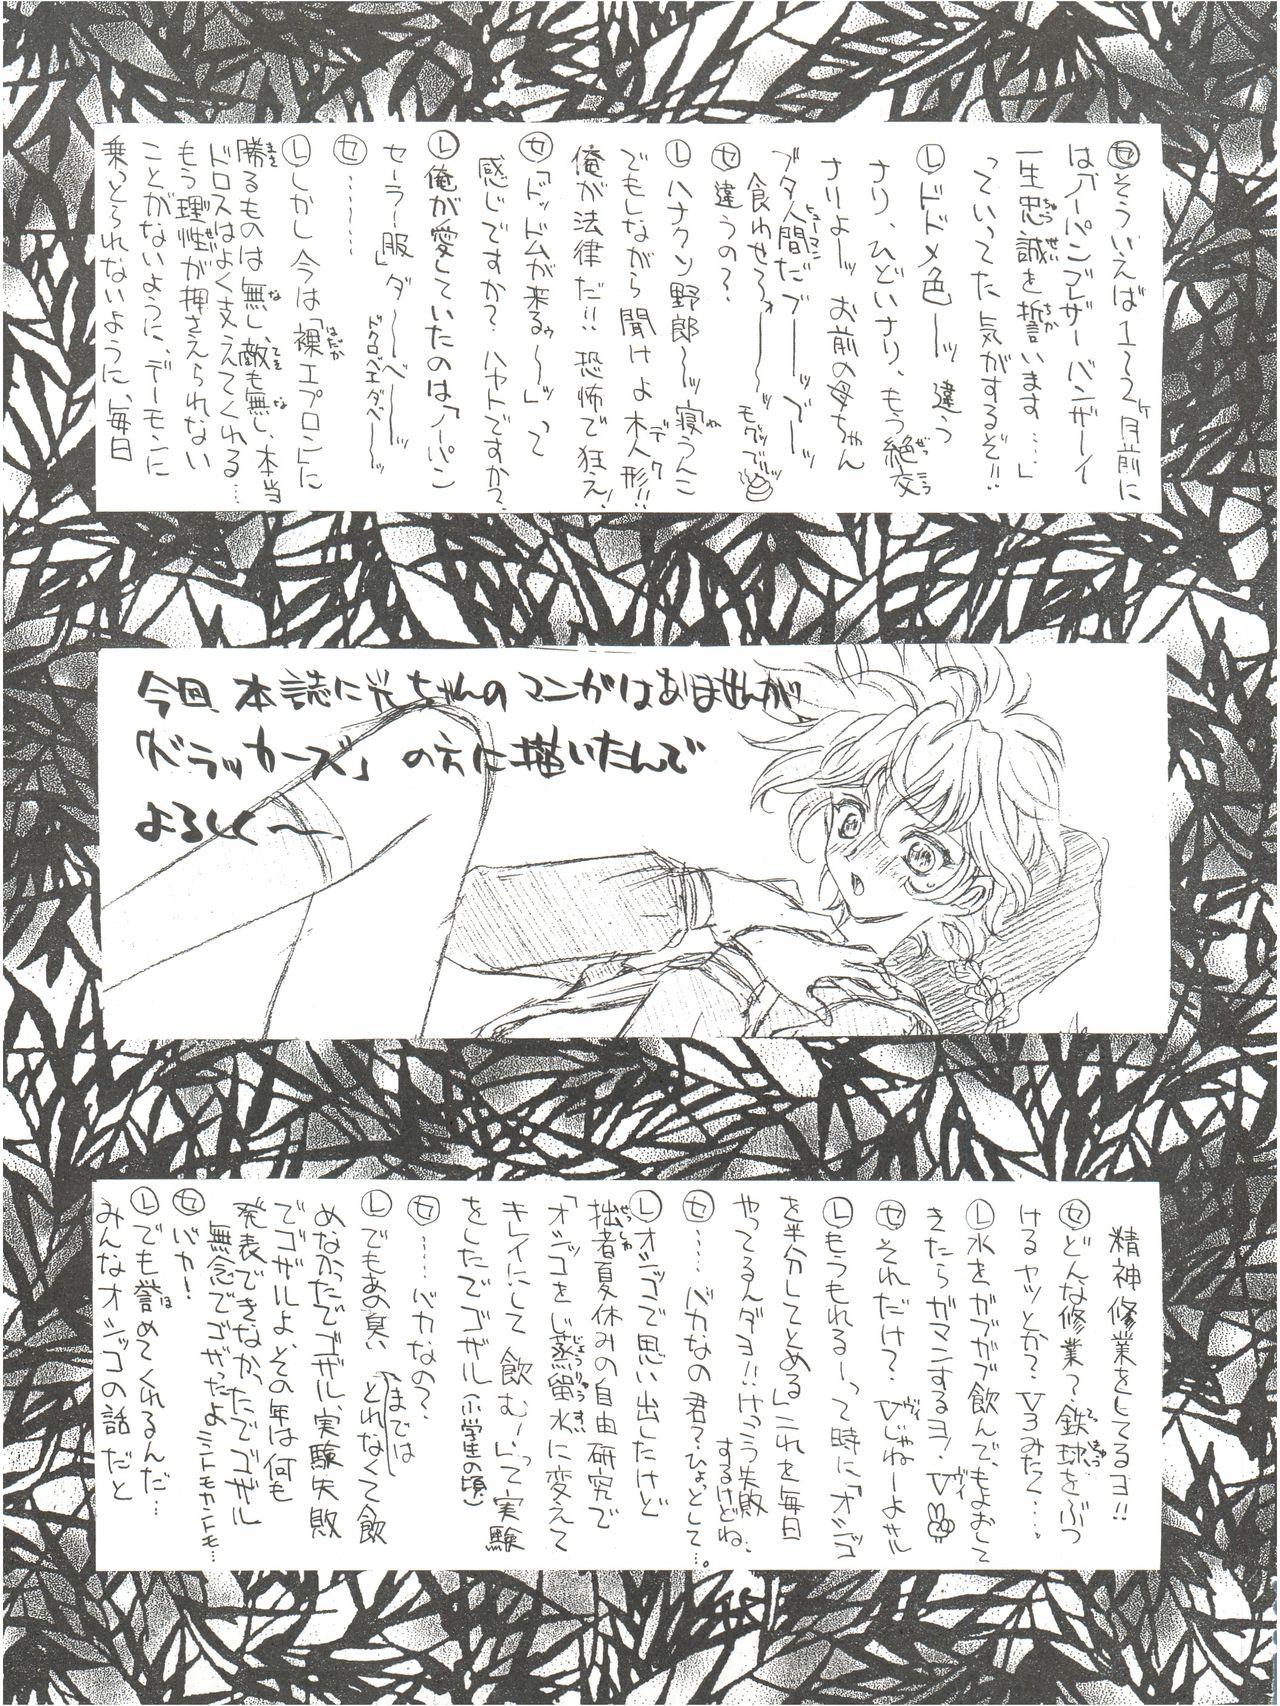 ㋝そういえば1〜2ヶ月前に
は「ノーパンブレザーバンザーイ
一生忠誠を誓います……」
っていってた気がするぞ!!
Ⓛドドメ色ーッ 違う
ナリ、ひどいナリ、もう絶交
ナリよーッ お前の母ちゃん
ブタ人間だブーッブーッ
食わせろォ〜〜〜ッ
㋝違うの?
Ⓛハナクソ野郎〜ッ 寝うんこ
でもしながら聞けよ木人形!!
俺が法律だ!! 恐怖で狂え!
㋝「ドッドムが来るゥ〜ッ」って
感じですか? ハヤトですか?
Ⓛ俺が愛していたのは「ノーパン
セーラー服」ダ〜〜ベ〜〜ッ
ドクロベエダベ〜ッ
㋝…………
Ⓛしかし今は「裸エプロン」に
勝るものは無し、敵も無し、本当
ドロスはよく支えてくれる…
もう理性が押さえられない
ことがないように、デーモンに
乗っとられないように、毎日
今回、本誌に光ちゃんのマンガはありませんが、
「ドラッカーズ」の方に描いたんで
よろしく〜
精神修業をしてるヨ!!
㋝どんな修業?、鉄球をぶつ
けるヤツとか? V3みたく…。
Ⓛ水をガブガブ飲んで、もよおして
きたらガマンするヨ! V
㋝それだけ? Vじゃねーよサル
Ⓛもうもれるーって時に「オシッコ
を半分してとめる」これを毎日
やってるんダヨ!! けっこう失敗
するけどね、
㋝……バカなの君? ひょっとして…。
Ⓛオシッコで思い出したけど
拙者夏休みの自由研究で
「オシッコをじ蒸留水に変えて
キレイにして飲む」って実験
をしたでゴザル(小学生の頃)
㋝……バカなの?
Ⓛでもあの臭いまではとれなくて飲
めなかったでゴザル、実験失敗
でゴザルよ、その年は何も
発表できなかったでゴザル
無念でゴザったよニントモカントモ…
㋝バカ!
Ⓛでも誉めてくれるんだ…
みんなオシッコの話だと